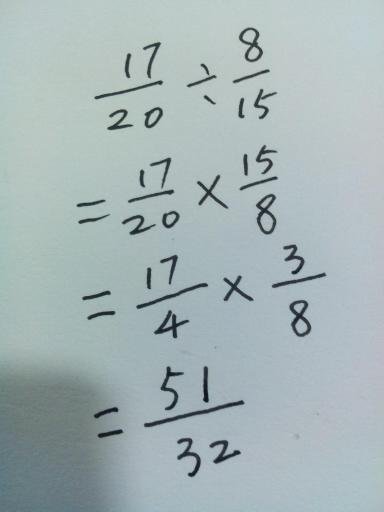 17/20 ÷ 8/15
= 17/20 × 15/8
= 17/4 × 3/8
= 51/32